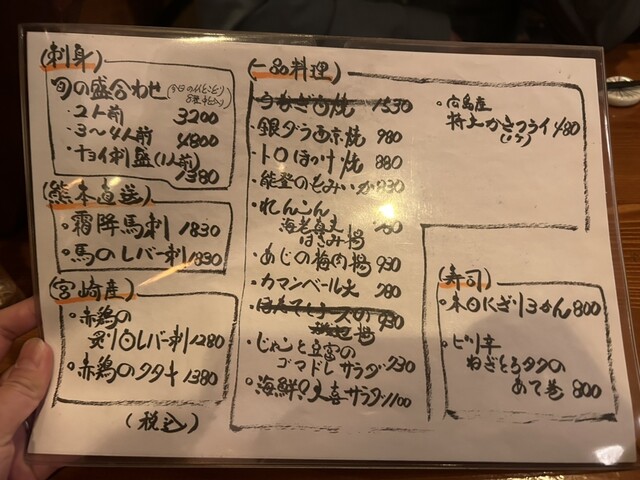 刺身
旬の盛合わせ
・2人前 3200
・3〜4人前 4800
・チョイ刺盛(1人前) 1380
熊本直送
・霜降馬刺 1830
・馬のレバー刺 1830
宮崎産
・赤鶏の
炙り白レバー刺 1280
・赤鶏のタタキ 1380
(税込)
一品料理
うなぎ白焼 1530
・銀ダラ西京焼 980
・トロほっけ焼 880
・能登のもみいか 830
・れんこん
海老真丈
はさみ揚
・あじの梅肉揚 930
・カマンベール天 780
ほたてとチーズの
930
・じゃこと豆富の
ゴマドレサラダ 730
・海鮮!大喜サラダ 1100
・広島産
特大かきフライ 480
寿司
・本日にぎり3かん 800
・ピリ辛
ねぎとろタクの
あて巻 800